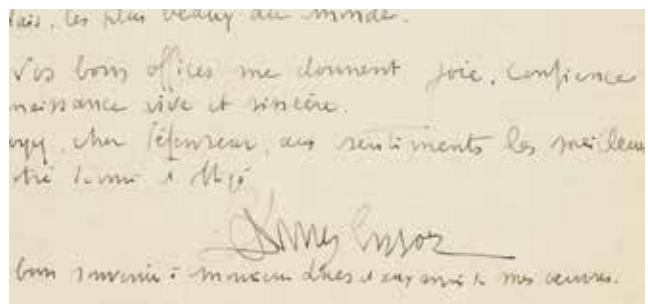 les plus beaux du monde.
Vos bons offices me donnent joie, confiance
naissance vive et sincère.
cher défenseur, aux sentiments les meilleu
James Ensor
bon souvenir à monsieur et aux amis de mes œuvres.